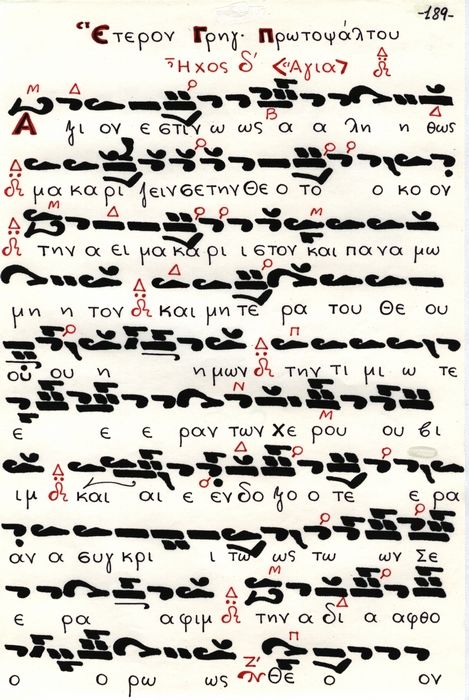 -189-
Ἕτερον Γρηγ. Πρωτοψάλτου
Ἦχος δ´ <Ἅγια> Δ
Μ Δ
Α ξι ον ε στιν ω ως α α λη η θως
Β Δ
Δ μα κα ρι ζειν σε την Θε ο το ο κο ον
Μ Δ Μ
Δ την α ει μα κα ρι ι στον και πα να μω
Δ
μη η τον Δ και μη τε ρα του Θε ου
Δ Π
ου ου η η μων την τι μι ω τε
Ν
ε ε ε ραν των Χε ρου ου βι
Μ
Δ Δ
ιμ και αι ε εν δο ξο ο τε ε ρα
αν α συγ κρι ι τω ως τω ων Σε
Δ Μ
ε ρα αφιμ την α δι α αφθο
Δ
Π
ο ο ρω ως Ζ´ Θε ο ον